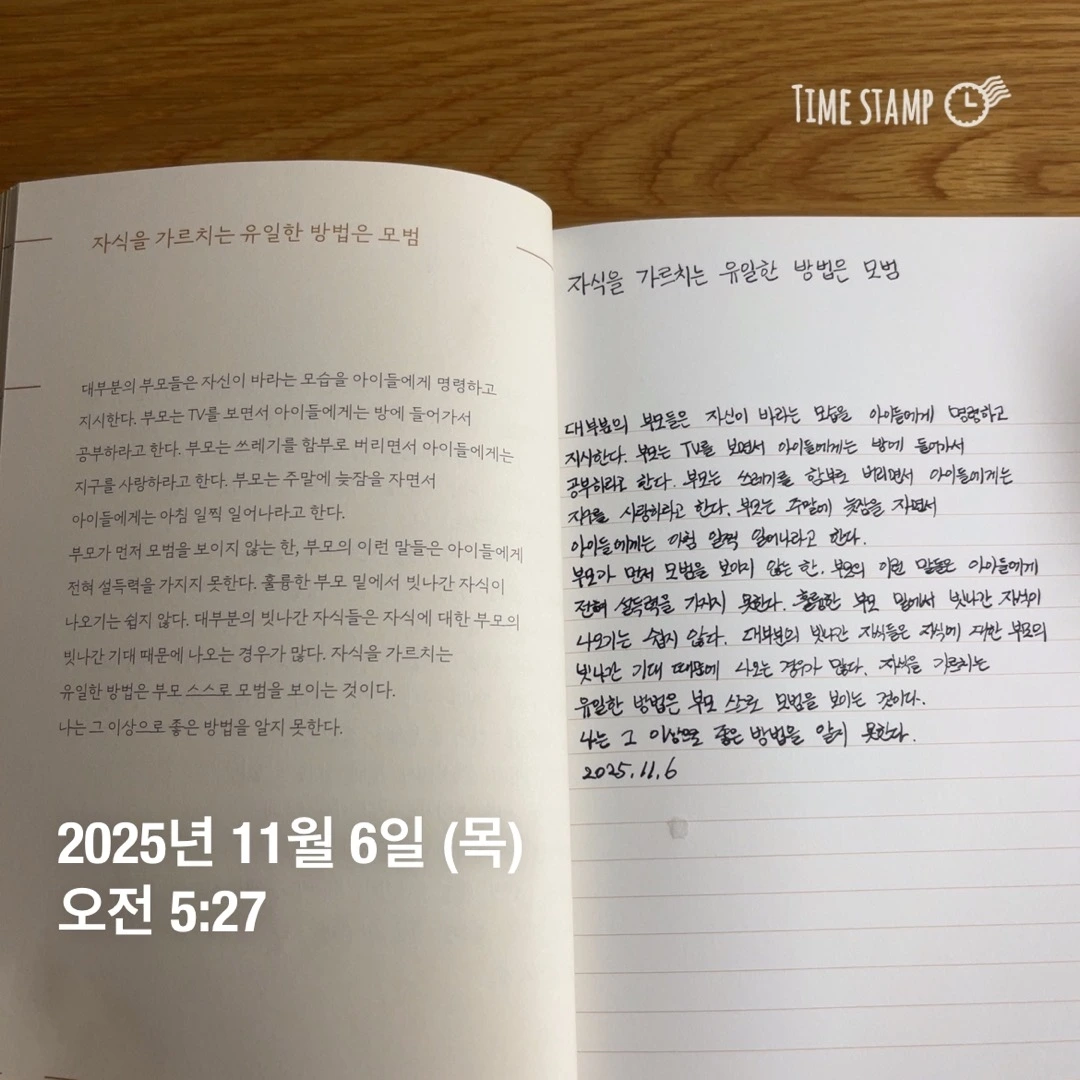 TIME STAMP
자식을 가르치는 유일한 방법은 모범
대부분의 부모들은 자신이 바라는 모습을 아이들에게 명령하고
지시한다. 부모는 TV를 보면서 아이들에게는 방에 들어가서
공부하라고 한다. 부모는 쓰레기를 함부로 버리면서 아이들에게는
지구를 사랑하라고 한다. 부모는 주말에 늦잠을 자면서
아이들에게는 아침 일찍 일어나라고 한다.
부모가 먼저 모범을 보이지 않는 한, 부모의 이런 말들은 아이들에게
전혀 설득력을 가지지 못한다. 훌륭한 부모 밑에서 빗나간 자식이
나오기는 쉽지 않다. 대부분의 빗나간 자식들은 자식에 대한 부모의
빗나간 기대 때문에 나오는 경우가 많다. 자식을 가르치는
유일한 방법은 부모 스스로 모범을 보이는 것이다.
나는 그 이상으로 좋은 방법을 알지 못한다.
2025년 11월 6일 (목)
오전 5:27
자식을 가르치는 유일한 방법은 모범
대부분의 부모들은 자신이 바라는 모습을 아이들에게 명령하고
지시한다. 부모는 TV를 보면서 아이들에게는 방에 들어가서
공부하라고 한다. 부모는 쓰레기를 함부로 버리면서 아이들에게는
지구를 사랑하라고 한다. 부모는 주말에 늦잠을 자면서
아이들에게는 아침 일찍 일어나라고 한다.
부모가 먼저 모범을 보이지 않는 한, 부모의 이런 말들은 아이들에게
전혀 설득력을 가지지 못한다. 훌륭한 부모 밑에서 빗나간 자식이
나오기는 쉽지 않다. 대부분의 빗나간 자식들은 자식에 대한 부모의
빗나간 기대 때문에 나오는 경우가 많다. 자식을 가르치는
유일한 방법은 부모 스스로 모범을 보이는 것이다.
나는 그 이상으로 좋은 방법을 알지 못한다.
2025.11.6